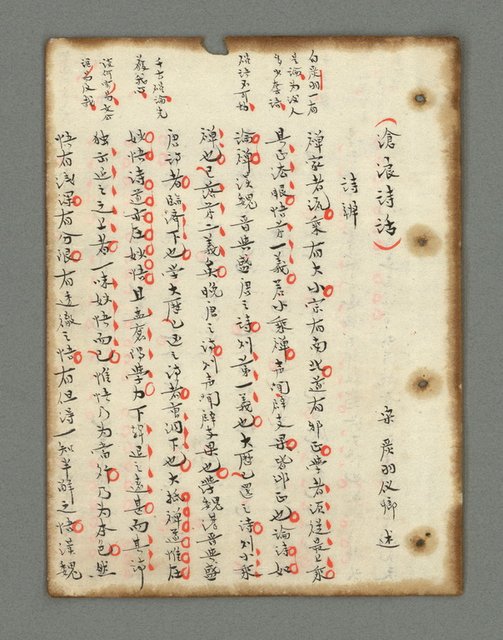 (滄浪詩話) 宋 嚴羽儀卿 述
詩辨
禪家者流乘有大小宗有南北道有邪正學者須從最上乘
具正法眼悟第一義若小乘禪聲聞辟支果皆非正也論詩如
論禪漢魏晉與盛唐之詩則第一義也大曆以還之詩則小乘
禪也已落第二義矣晚唐之詩則聲聞辟支果也學漢魏晉與盛
唐詩者臨濟下也學大曆以還之詩者曹洞下也大抵禪道惟在
妙悟詩道亦在妙悟且孟襄陽學力下韓退之遠甚而其詩
獨出退之之上者一味妙悟而已惟悟乃為當行乃為本色然
悟有淺深有分限有透徹之悟有但得一知半解之悟漢魏
千古確論先
獲我心